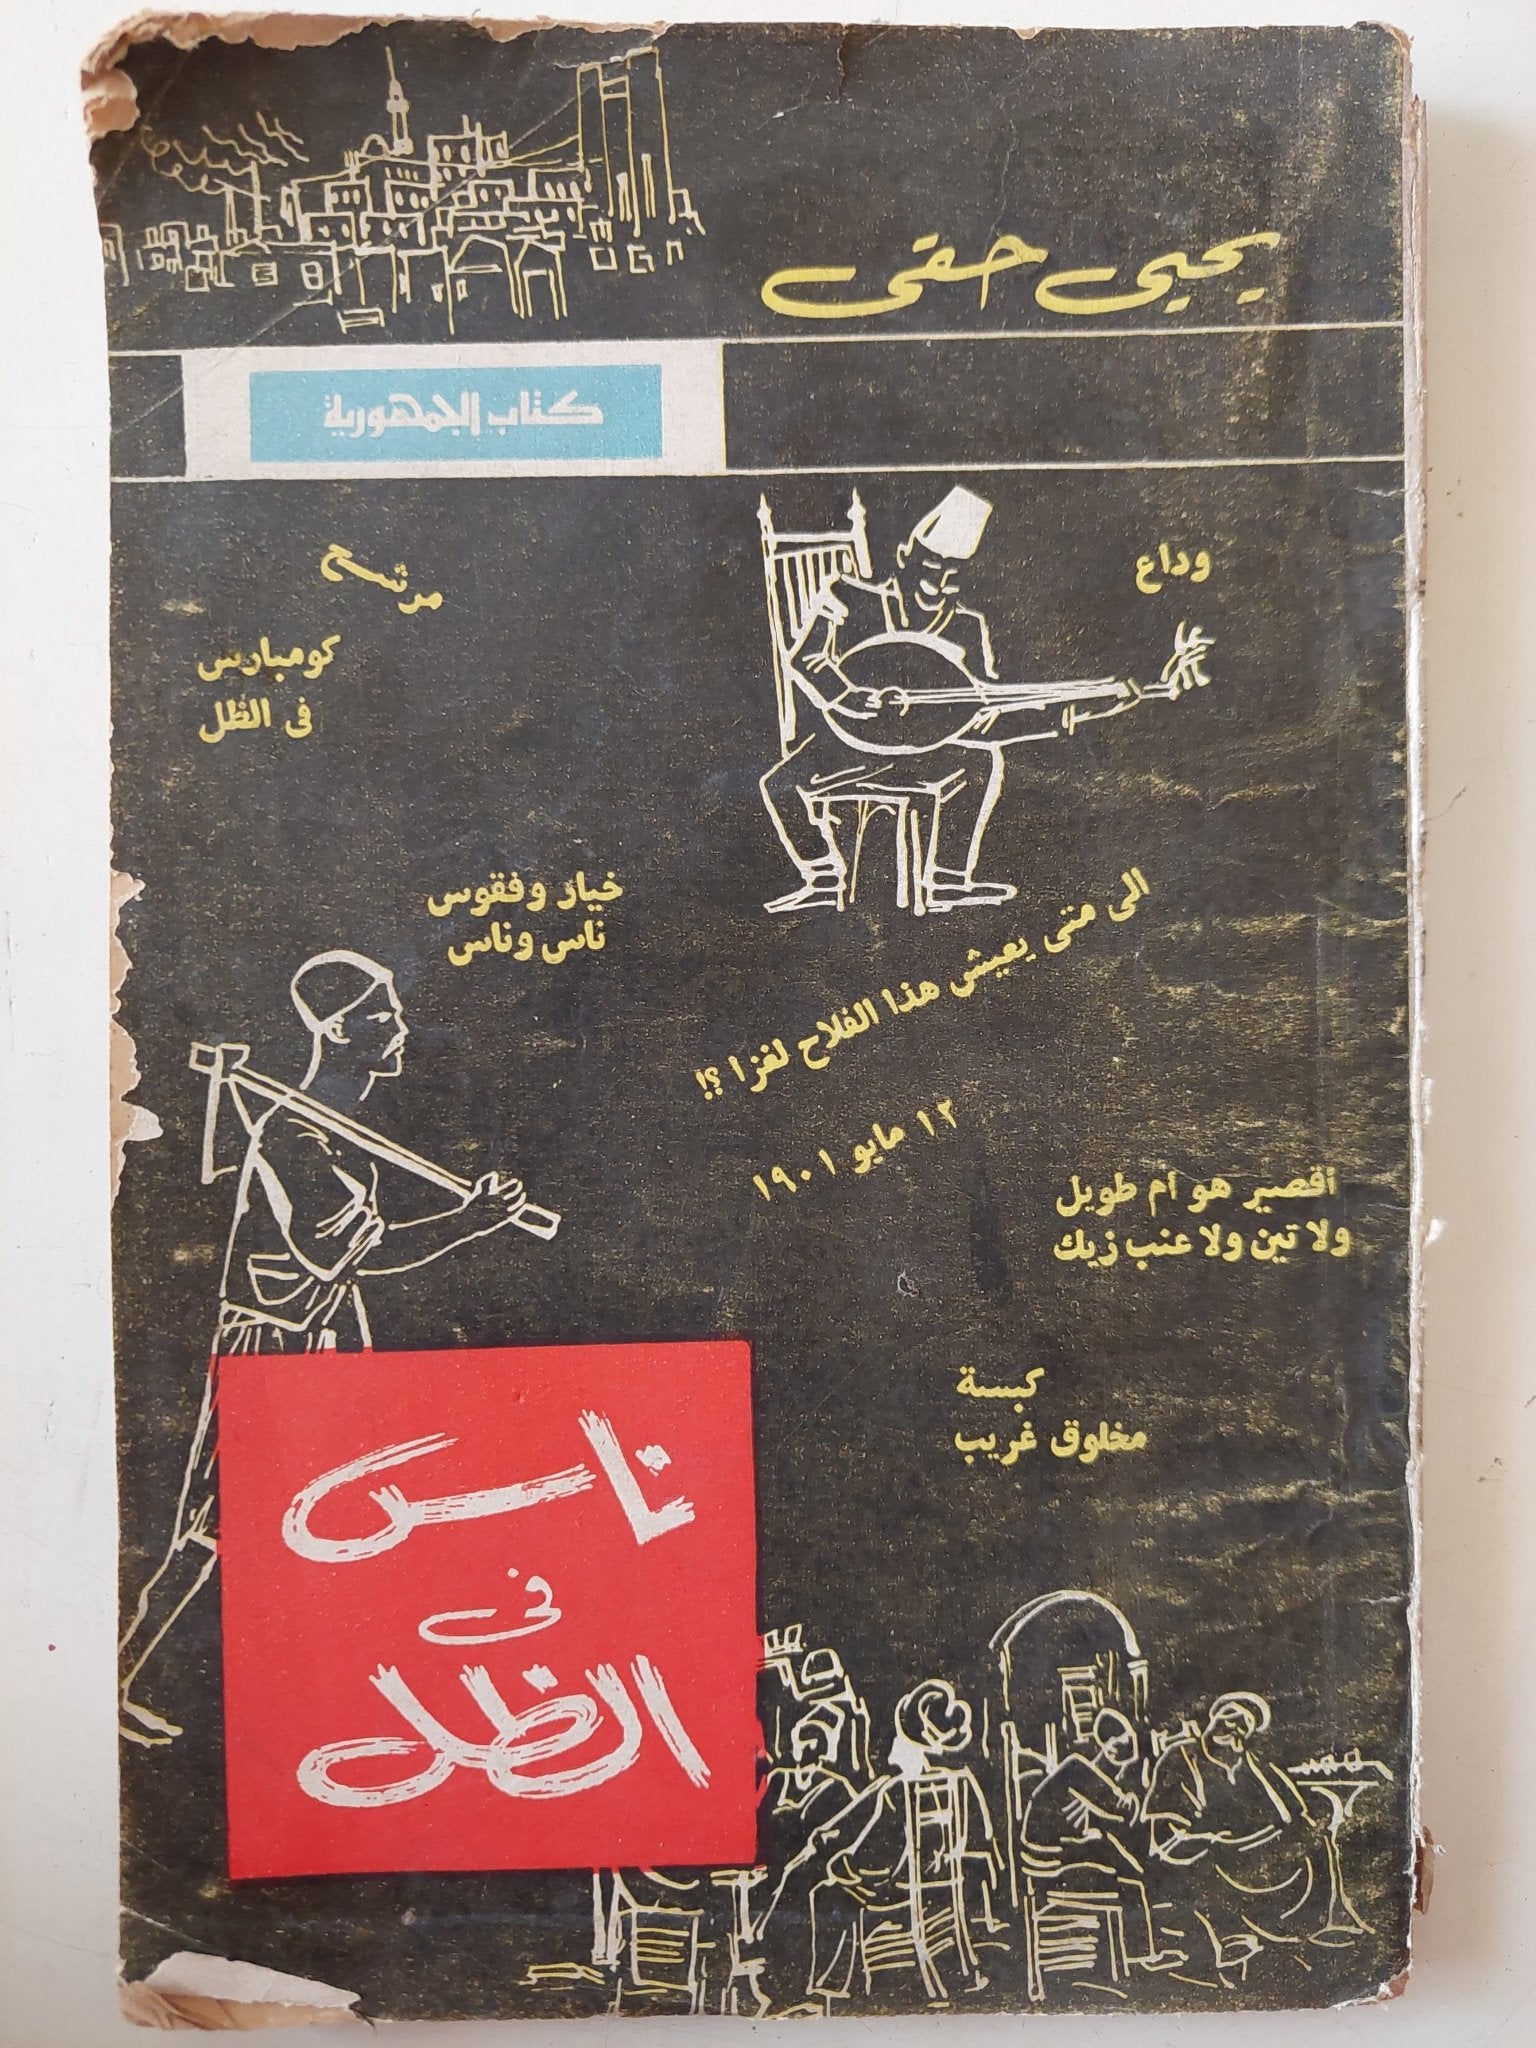 يحيى حقى
كتاب الجمهورية
وداع
مرشح
كومبارس
فى الظل
خيار وفقوس
ناس وناس
الى متى يعيش هذا الفلاح لغزا ؟!
١٢ مايو ١٩٠١
أقصير هو أم طويل
ولا تين ولا عنب زيك
كبسة
مخلوق غريب
ناس
فى
الظل